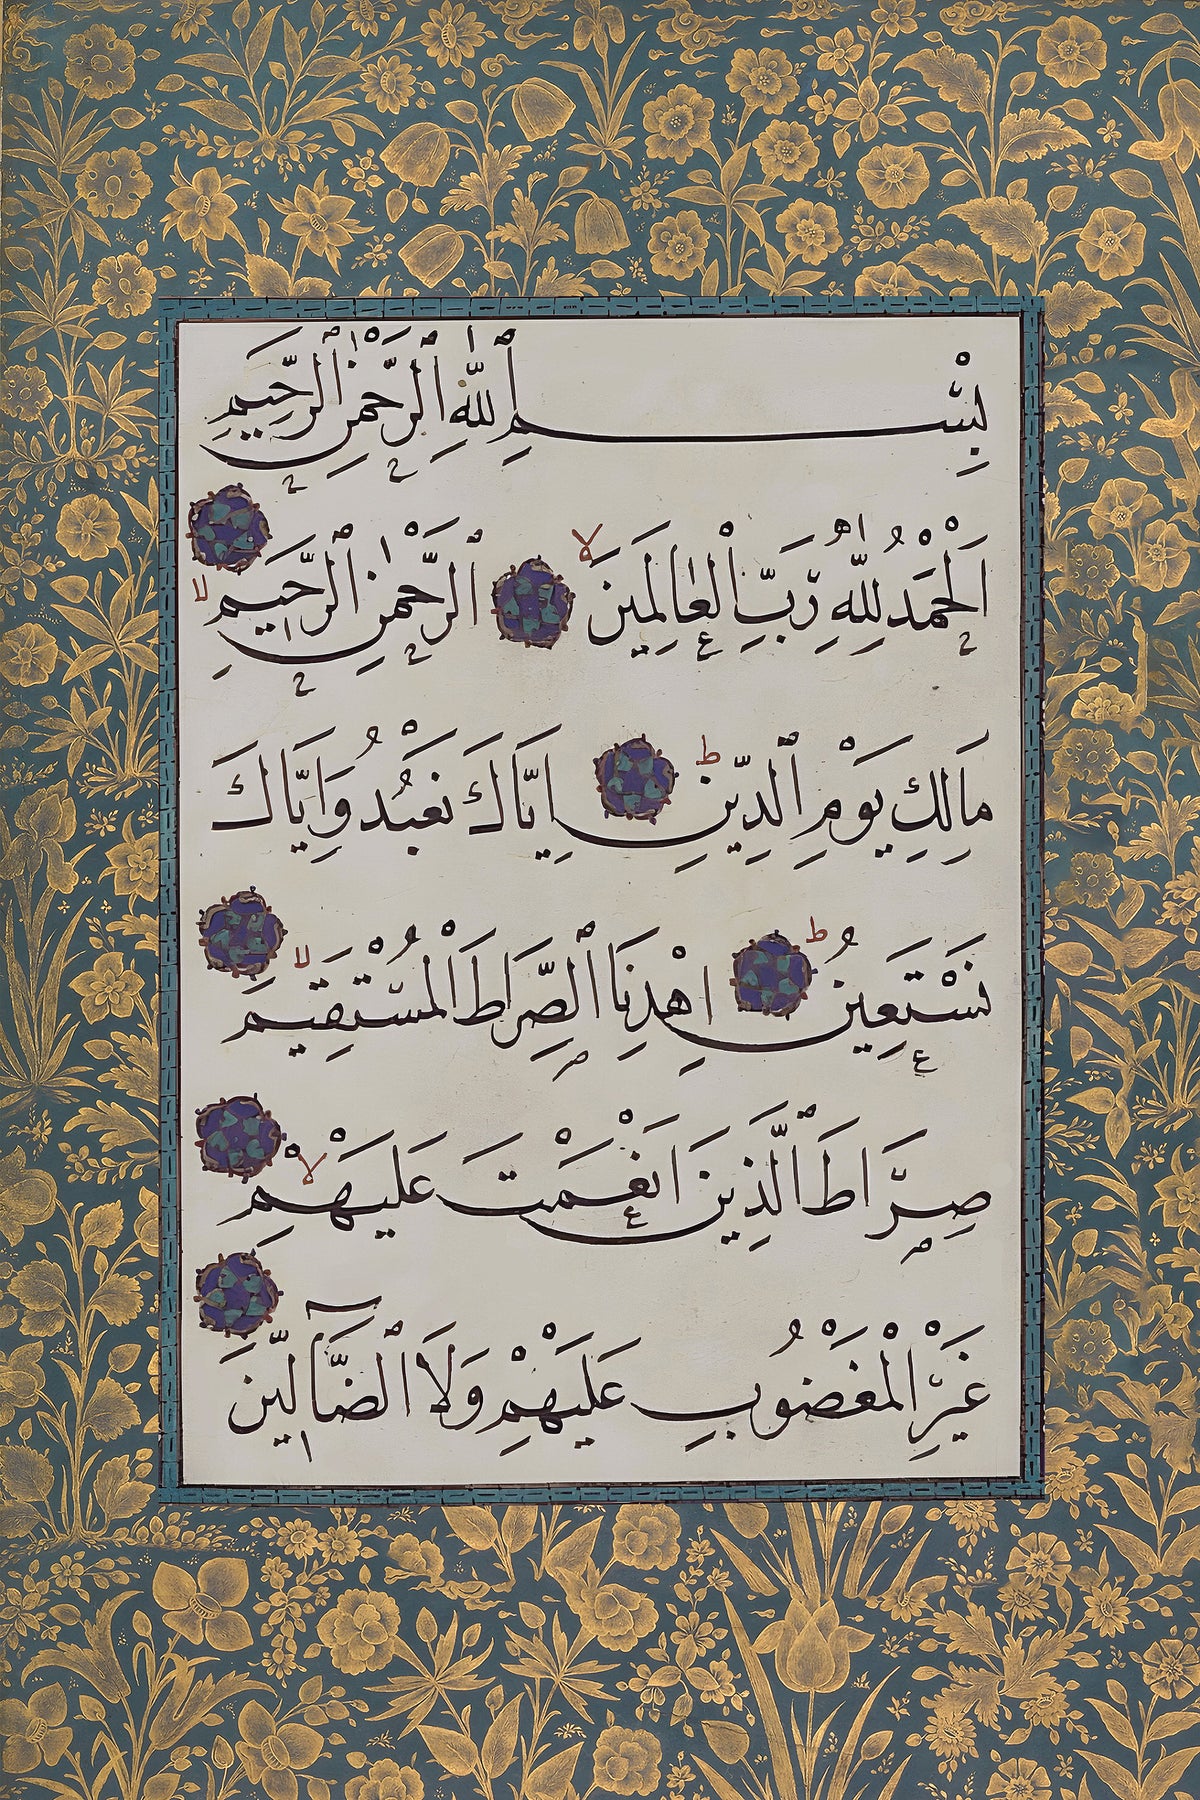 بِسْمِ ٱللّٰهِ ٱلرَّحْمٰنِ ٱلرَّحِيمِ
اَلْحَمْدُ لِلّٰهِ رَبِّ الْعَالَمِينَ لا ٱلرَّحْمٰنِ ٱلرَّحِيمِ لا
مَالِكِ يَوْمِ ٱلدِّينِ ط اِيَّاكَ نَعْبُدُ وَاِيَّاكَ
نَسْتَعِينُ ط اِهْدِنَا ٱلصِّرَاطَ الْمُسْتَقِيمَ لا
صِرَاطَ ٱلَّذِينَ اَنْعَمْتَ عَلَيْهِمْ لا
غَيْرِ الْمَغْضُوبِ عَلَيْهِمْ وَلَا ٱلضَّآلِّينَ